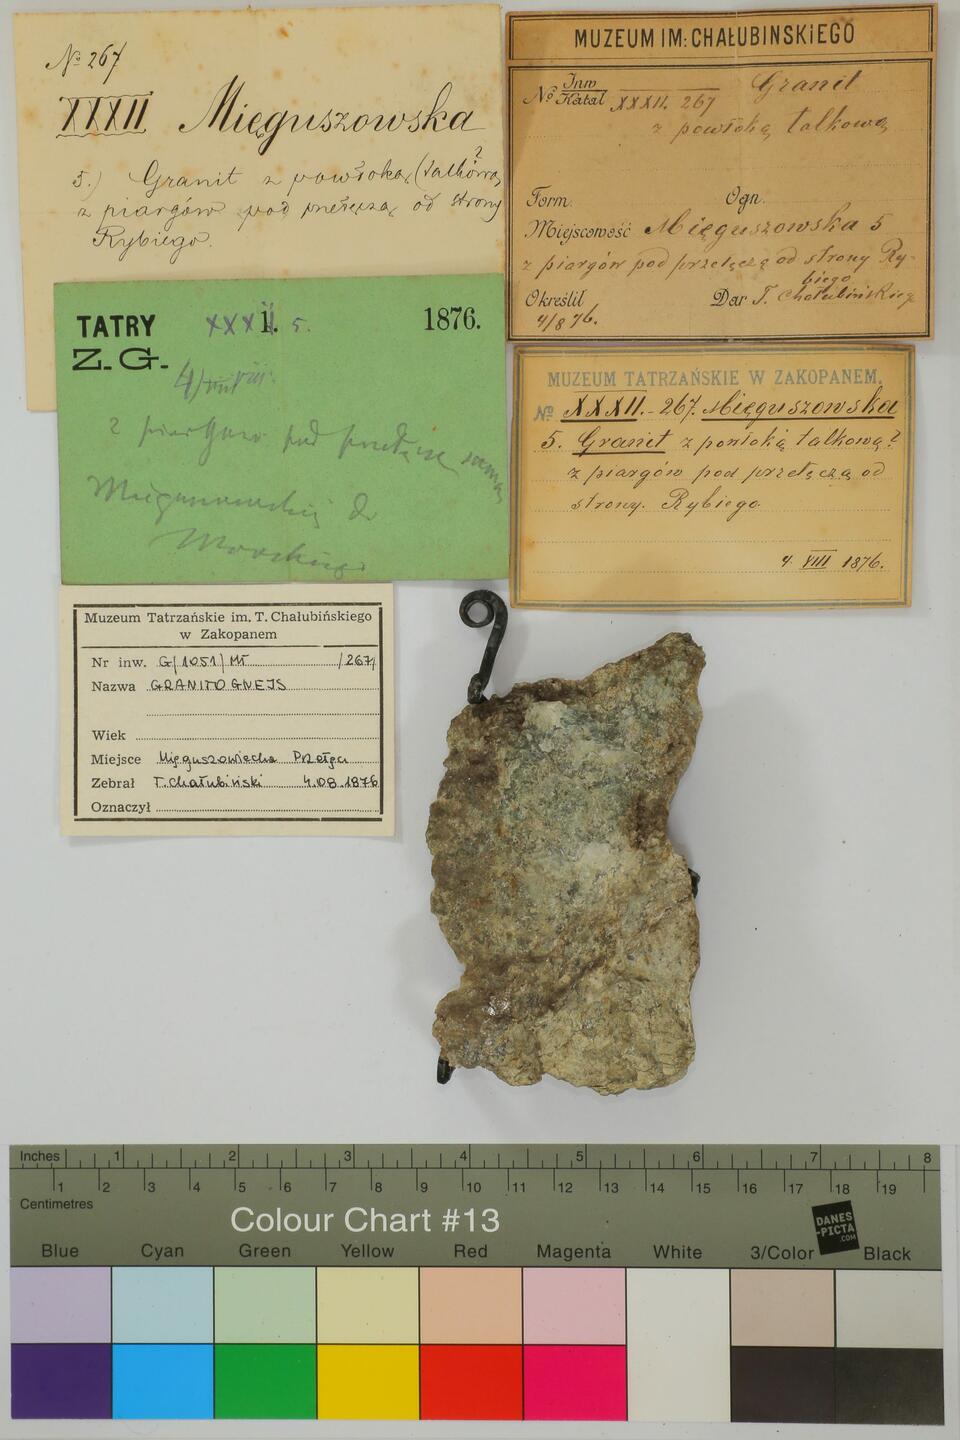 № 267
XXXII Mięguszowska
5.) Granit z powłoką (talkową?
z piargów pod przełęczą od strony
Rybiego.
MUZEUM IM: CHAŁUBINSKIEGO
№ Inw Katal XXXII. 267 Granit
z powłoką talkową
Form. Ogn.
Miejscowość Mięguszowska 5
z piargów pod przełęczą od strony Ry-
biego
Określił Dar T. Chałubińskieg
4/8 76.
TATRY XXXII. 5. 1876.
Z. G.
4/VIII
z piargów pod przełęczą
Mięguszowską do
Morskiego
MUZEUM TATRZAŃSKIE W ZAKOPANEM.
№ XXXII.-267. Mięguszowska
5. Granit z powłoką talkową?
z piargów pod przełęczą od
strony Rybiego.
4 VIII 1876.
Muzeum Tatrzańskie im. T. Chałubińskiego
w Zakopanem
Nr inw. G/1051/MT /267/
Nazwa GRANITOGNEJS
Wiek
Miejsce Mięguszowiecka Przełęcz
Zebrał T. Chałubiński 4.08.1876
Oznaczył
Inches 1 2 3 4 5 6 7 8
1 2 3 4 5 6 7 8 9 10 11 12 13 14 15 16 17 18 19
Centimetres
Colour Chart #13
DANES
-PICTA
.COM
Blue Cyan Green Yellow Red Magenta White 3/Color Black